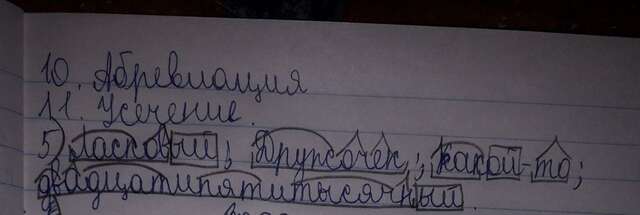 10. Абревиация
11. Усечение.
5) Ласковый; Дружочек; какой-то;
двадцатипятитысячный.